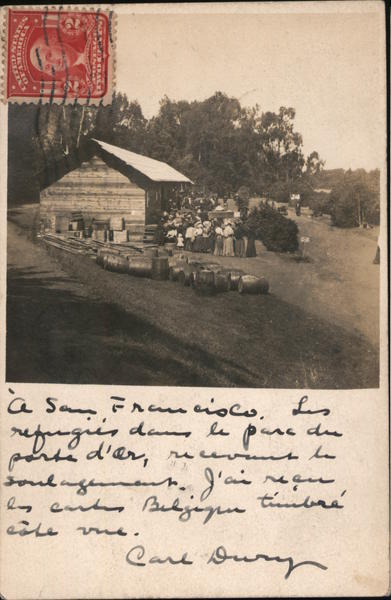 À San Francisco. Les
refugiés dans le parc du
porte d'Or, recevant le
soulagement. J'ai reçu
les cartes Belgique timbré
côte vue.
Carl